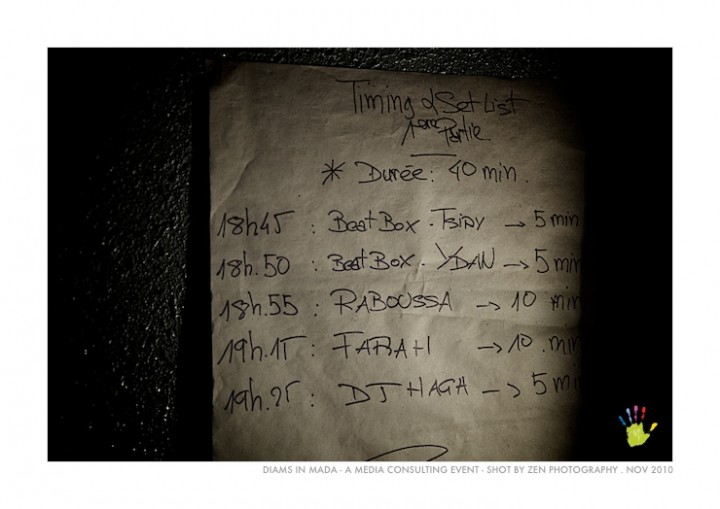 Timing & Set List
1ère Partie
* Durée : 40 min.
18h45 : Beat Box . TSIRY → 5 min
18h.50 : Beat Box . YDAN → 5 min
18h.55 : RABOUSSA → 10 min
19h.15 : FARAH → 10 . min
19h.25 : DJ HAGA → 5 mi
DIAMS IN MADA - A MEDIA CONSULTING EVENT - SHOT BY ZEN PHOTOGRAPHY . NOV 2010